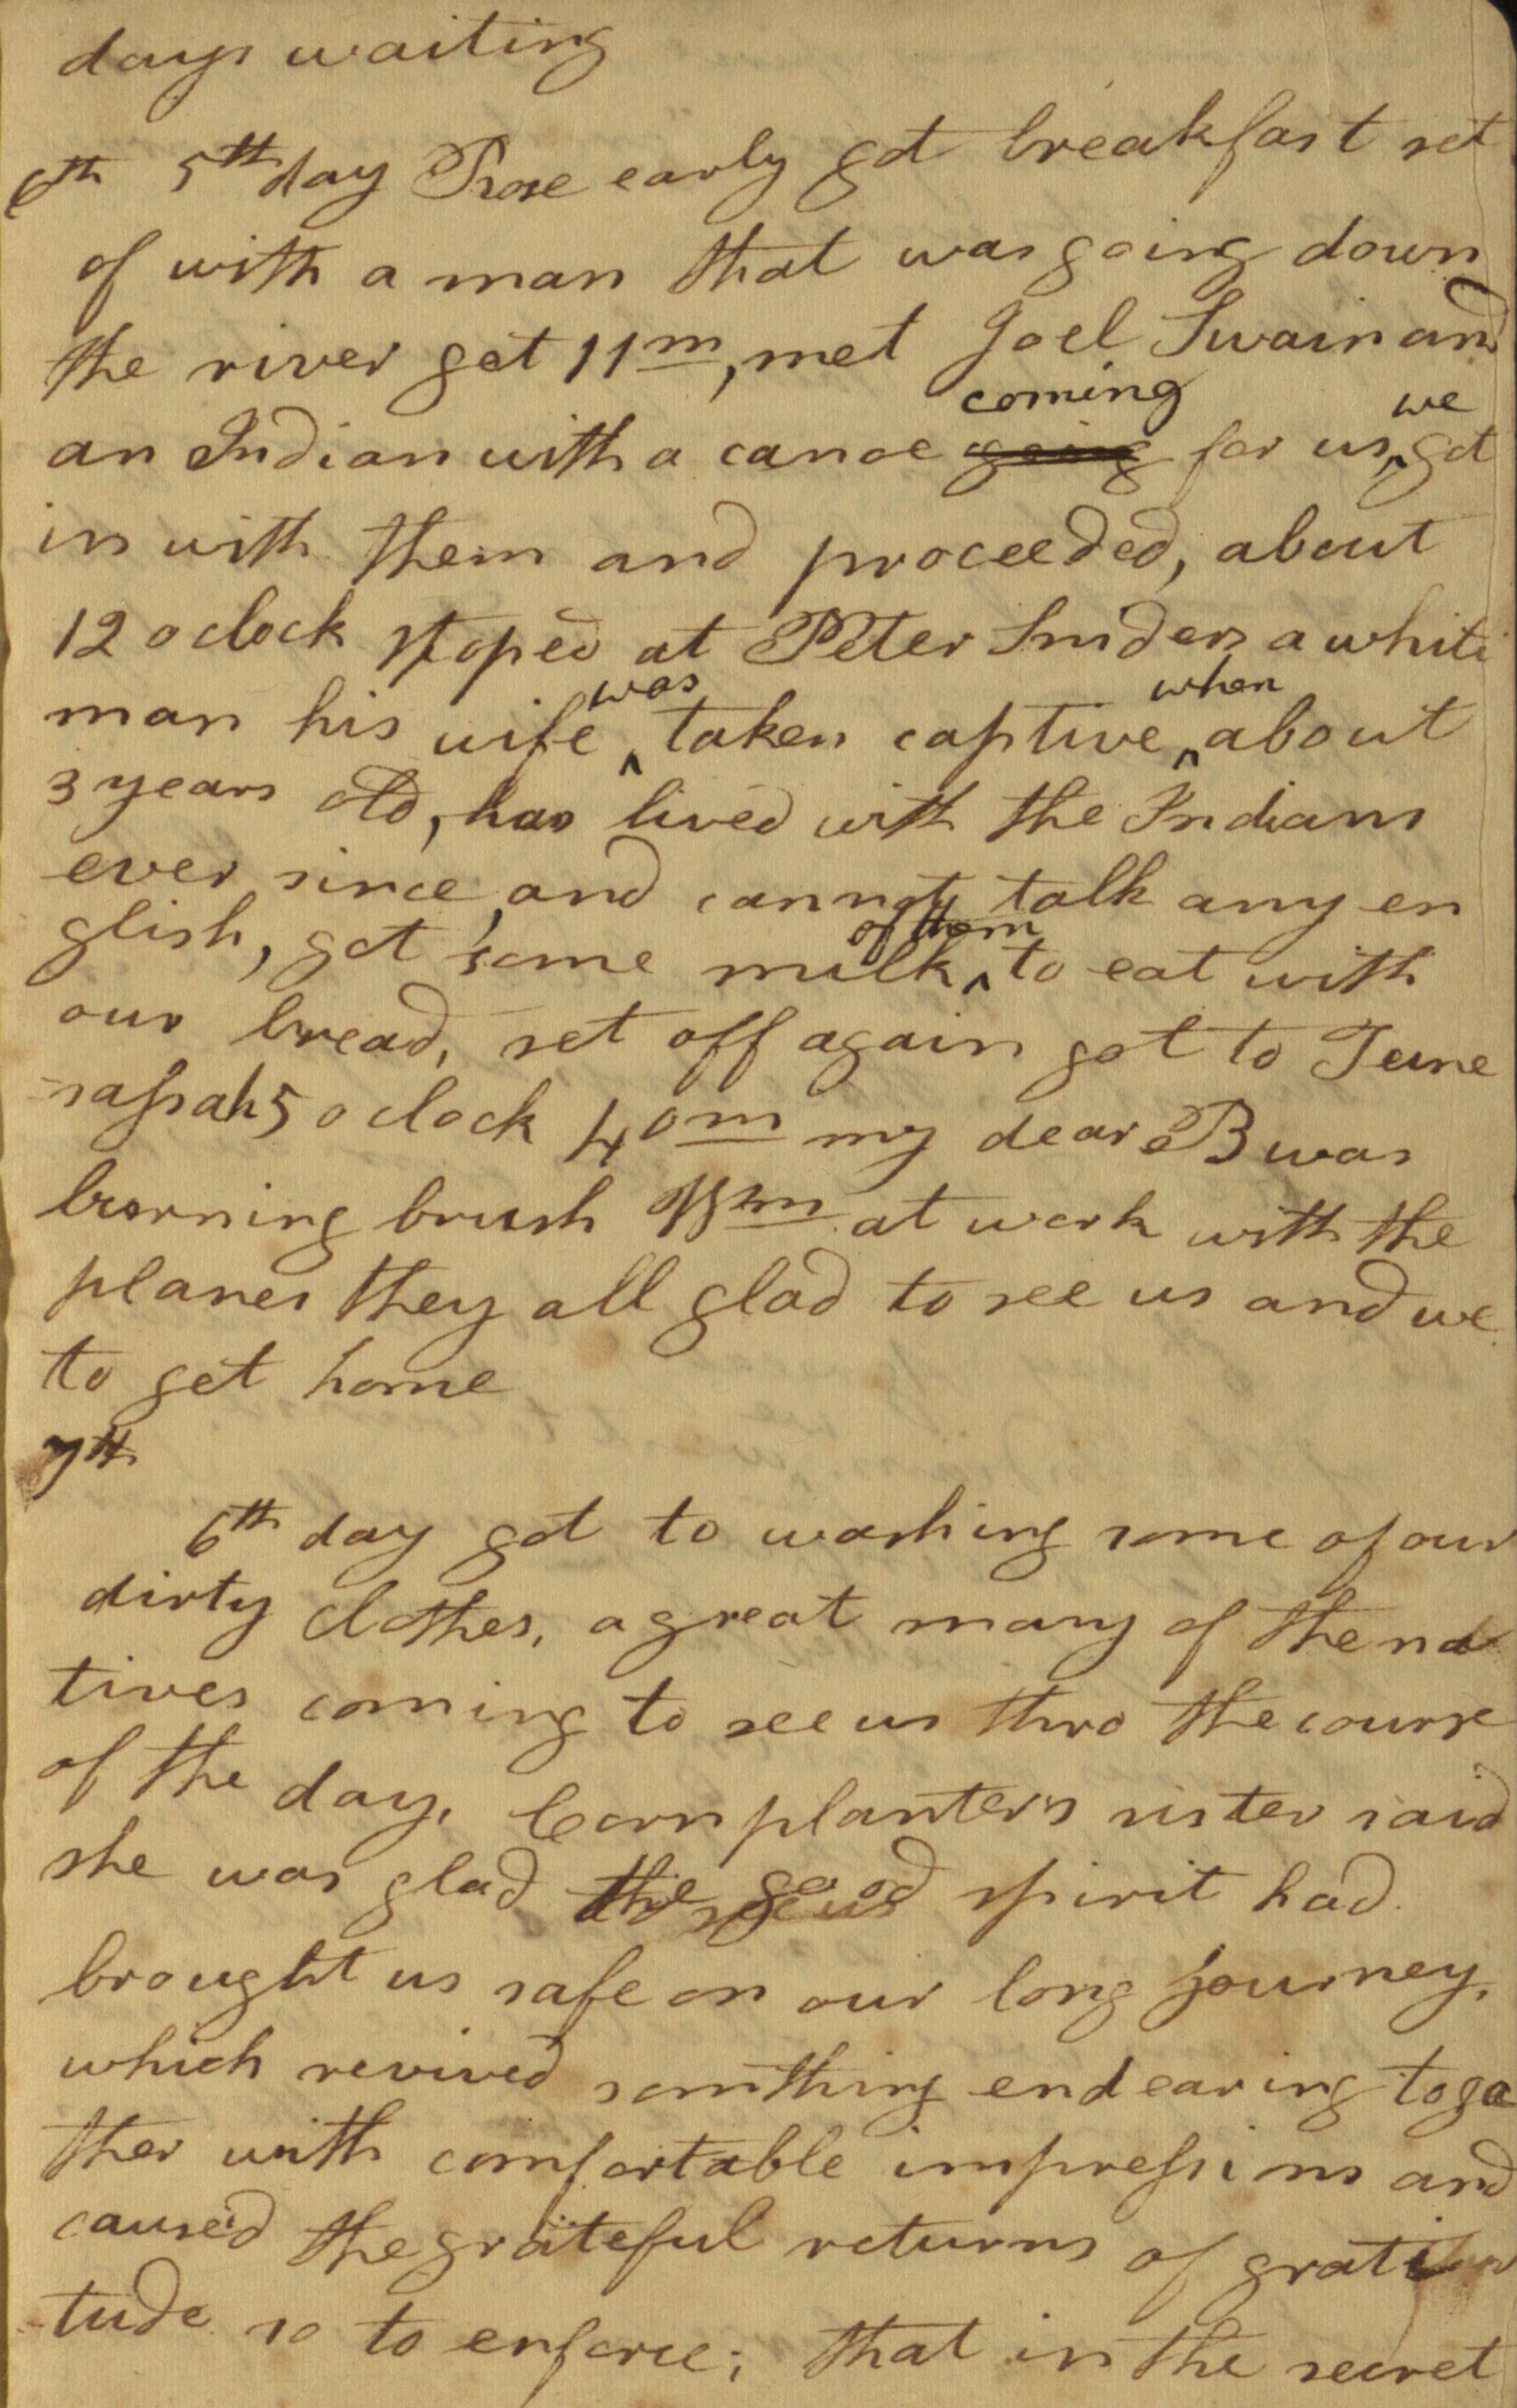 days waiting
6th 5th day Rose early got breakfast set
of with a man that was going down
the river get 11m, met Joel Swain and
coming we
an Indian with a canoe going for us, got
in with them and proceeded, about
12 o clock stoped at Peter Sniders a white
was when
man his wife taken captive about
3 years old, has lived with the Indians
ever since, and cannot talk any en
of them
glish, got some milk to eat with
our bread, set off again got to Tune
sassah 5 o clock 40m my dear B was
burning brush at work with the
planes they all glad to see us and we
to get home
7th
6th day got to washing some of our
dirty clothes, a great many of the na
tives coming to see us thro the course
of the day, Cornplanters sister said
she was glad the good spirit had
brought us safe on our long journey,
which revived somthing endearing toge
ther with comfortable impressions and
caused the grateful returns of grati
tude so to enforce; that in the secret